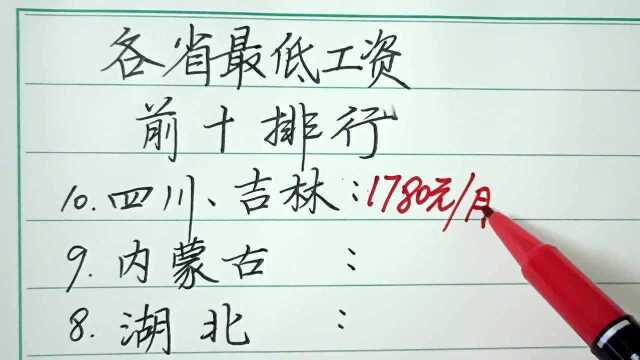 各省最低工资
前十排行
10.四川、吉林:1780元/月
9.内蒙古:
8.湖北: